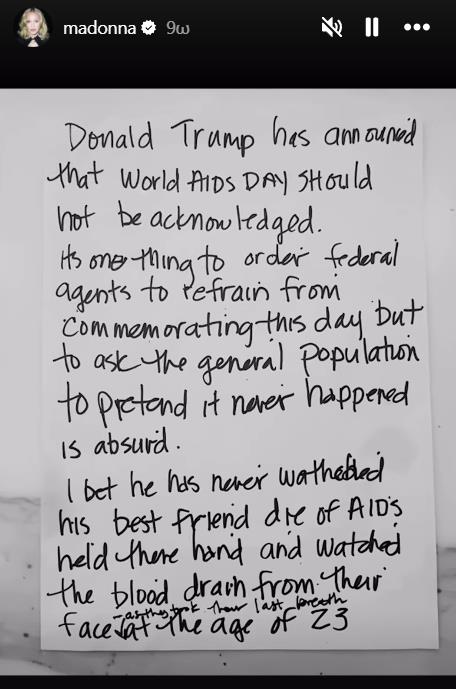 madonna 9ω
Donald Trump has announced
that World AIDS DAY SHould
not be acknowledged.
its one thing to order federal
agents to refrain from
commemorating this day but
to ask the general population
to pretend it never happened
is absurd.
I bet he has never watched
his best friend die of AIDS
held there hand and watched
the blood drain from their
- as they took their last breath
face at the age of 23